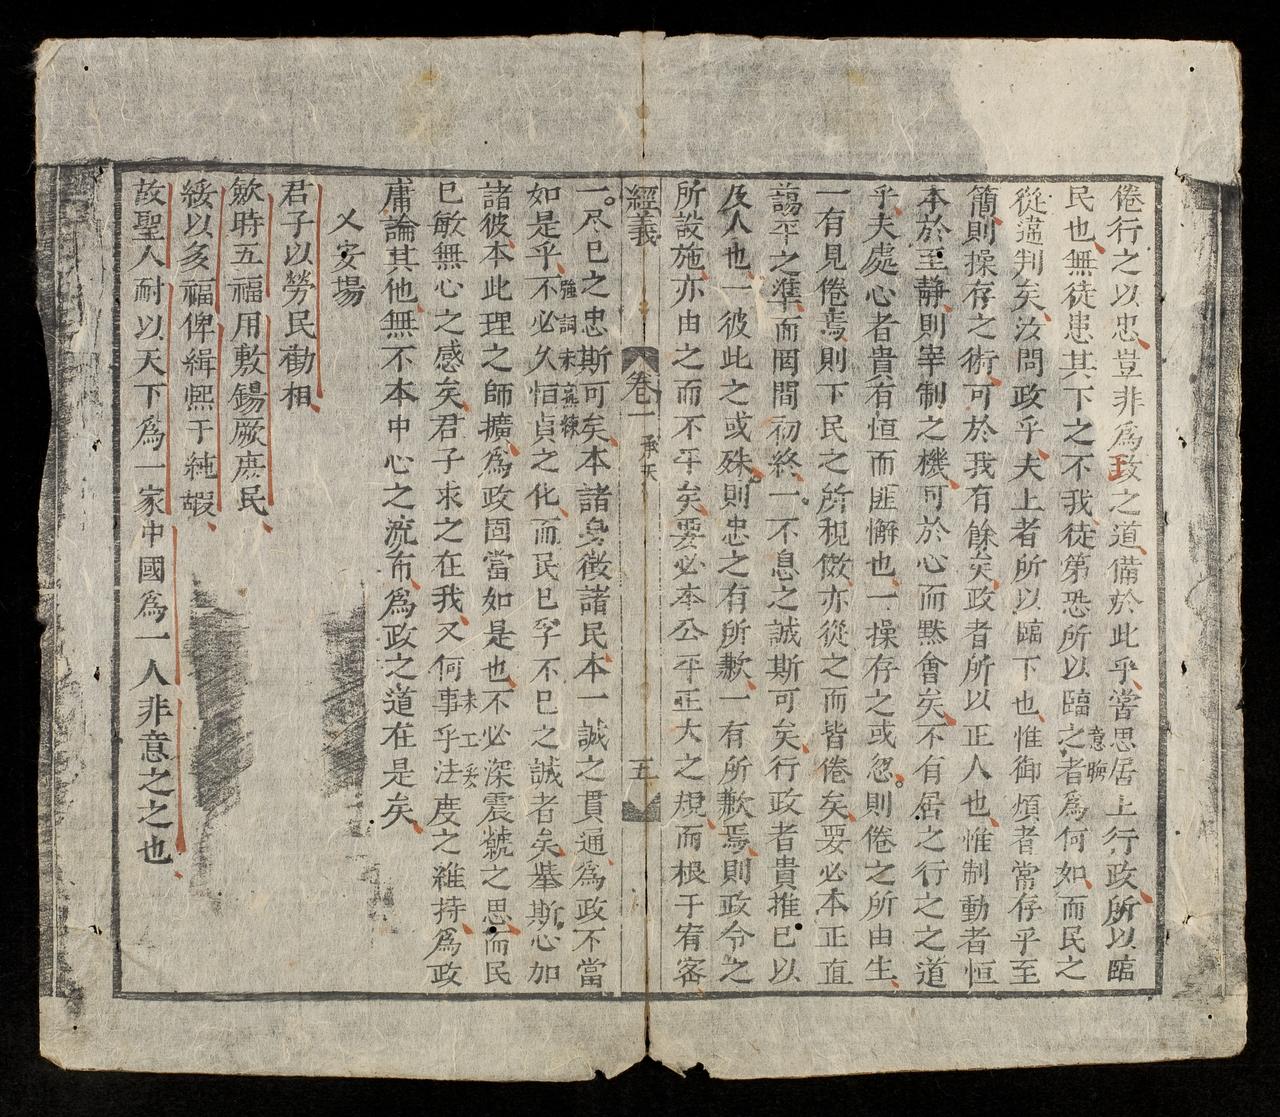 倦行之以忠豈非爲政之道備於此乎當思居上行政所以臨
民也無徒患其下之不我徒第恐所以臨之者爲何如而民之
意晦
從違判矣汝問政乎夫上者所以臨下也惟御煩者常存乎至
簡則操存之術可於我有餘矣政者所以正人也惟制動者恒
本於至靜則宰制之機可於心而黙會矣不有居之行之之道
乎夫處心者貴有恒而匪懈也一操存之或忽則倦之所由生
一有見倦焉則下民之所視傚亦從之而皆倦矣要必本正直
蕩平之準而罔間初終一不息之誠斯可矣行政者貴推已以
及人也一彼此之或殊則忠之有所歉一有所歉焉則政令之
所設施亦由之而不平矣要必本公平正大之規而根于宥密
經義
卷一
承天
五
一尽已之忠斯可矣本諸身徵諸民本一誠之貫通爲政不當
如是乎不必久恒貞之化而民已孚不已之誠者矣舉斯心加
強詞未竟練
諸彼本此理之師擴爲政固當如是也不必深震虩之思而民
已敏無心之感矣君子求之在我又何事乎法度之維持爲政
未工妥
庸論其他無不本中心之流布爲政之道在是矣
乂安場
君子以勞民勸相
歛時五福用敷錫厥庶民
綏以多福俾緝熙于純嘏
故聖人耐以天下爲一家中國爲一人非意之之也